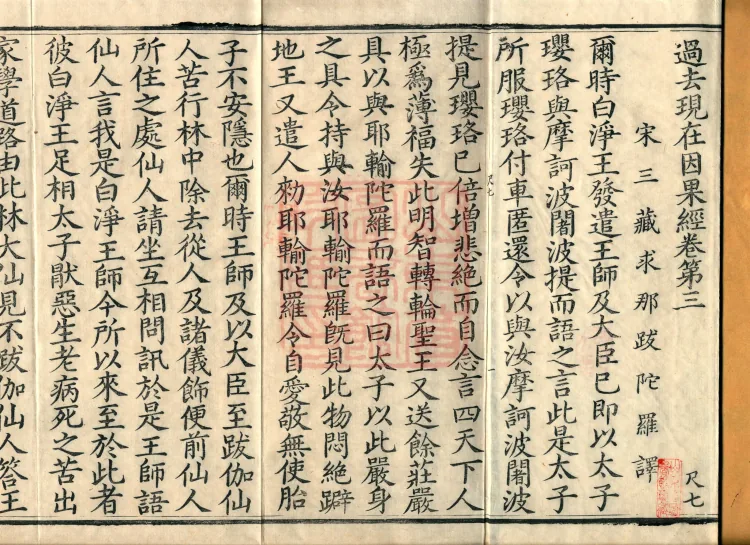 過去現在因果經卷第三
尺七
宋三藏求那跋陀羅譯
爾時白淨王發遣王師及大臣已即以太子
瓔珞與摩訶波闍波提而語之言此是太子
所服瓔珞付車匿還令以與汝摩訶波闍波
尺七
提見瓔珞已倍增悲絕而自念言四天下人
極爲薄福失此明智轉輪聖王又送餘莊嚴
具以與耶輸陀羅而語之曰太子以此嚴身
之具令持與汝耶輸陀羅旣見此物悶絕躃
地王又遣人勑耶輸陀羅令自愛敬無使胎
子不安隱也爾時王師及以大臣至跋伽仙
人苦行林中除去從人及諸儀飾便前仙人
所住之處仙人請坐互相問訊於是王師語
仙人言我是白淨王師今所以來至於此者
彼白淨王足相太子猒惡生老病死之苦出
家學道路由此林大仙見不跋伽仙人答王